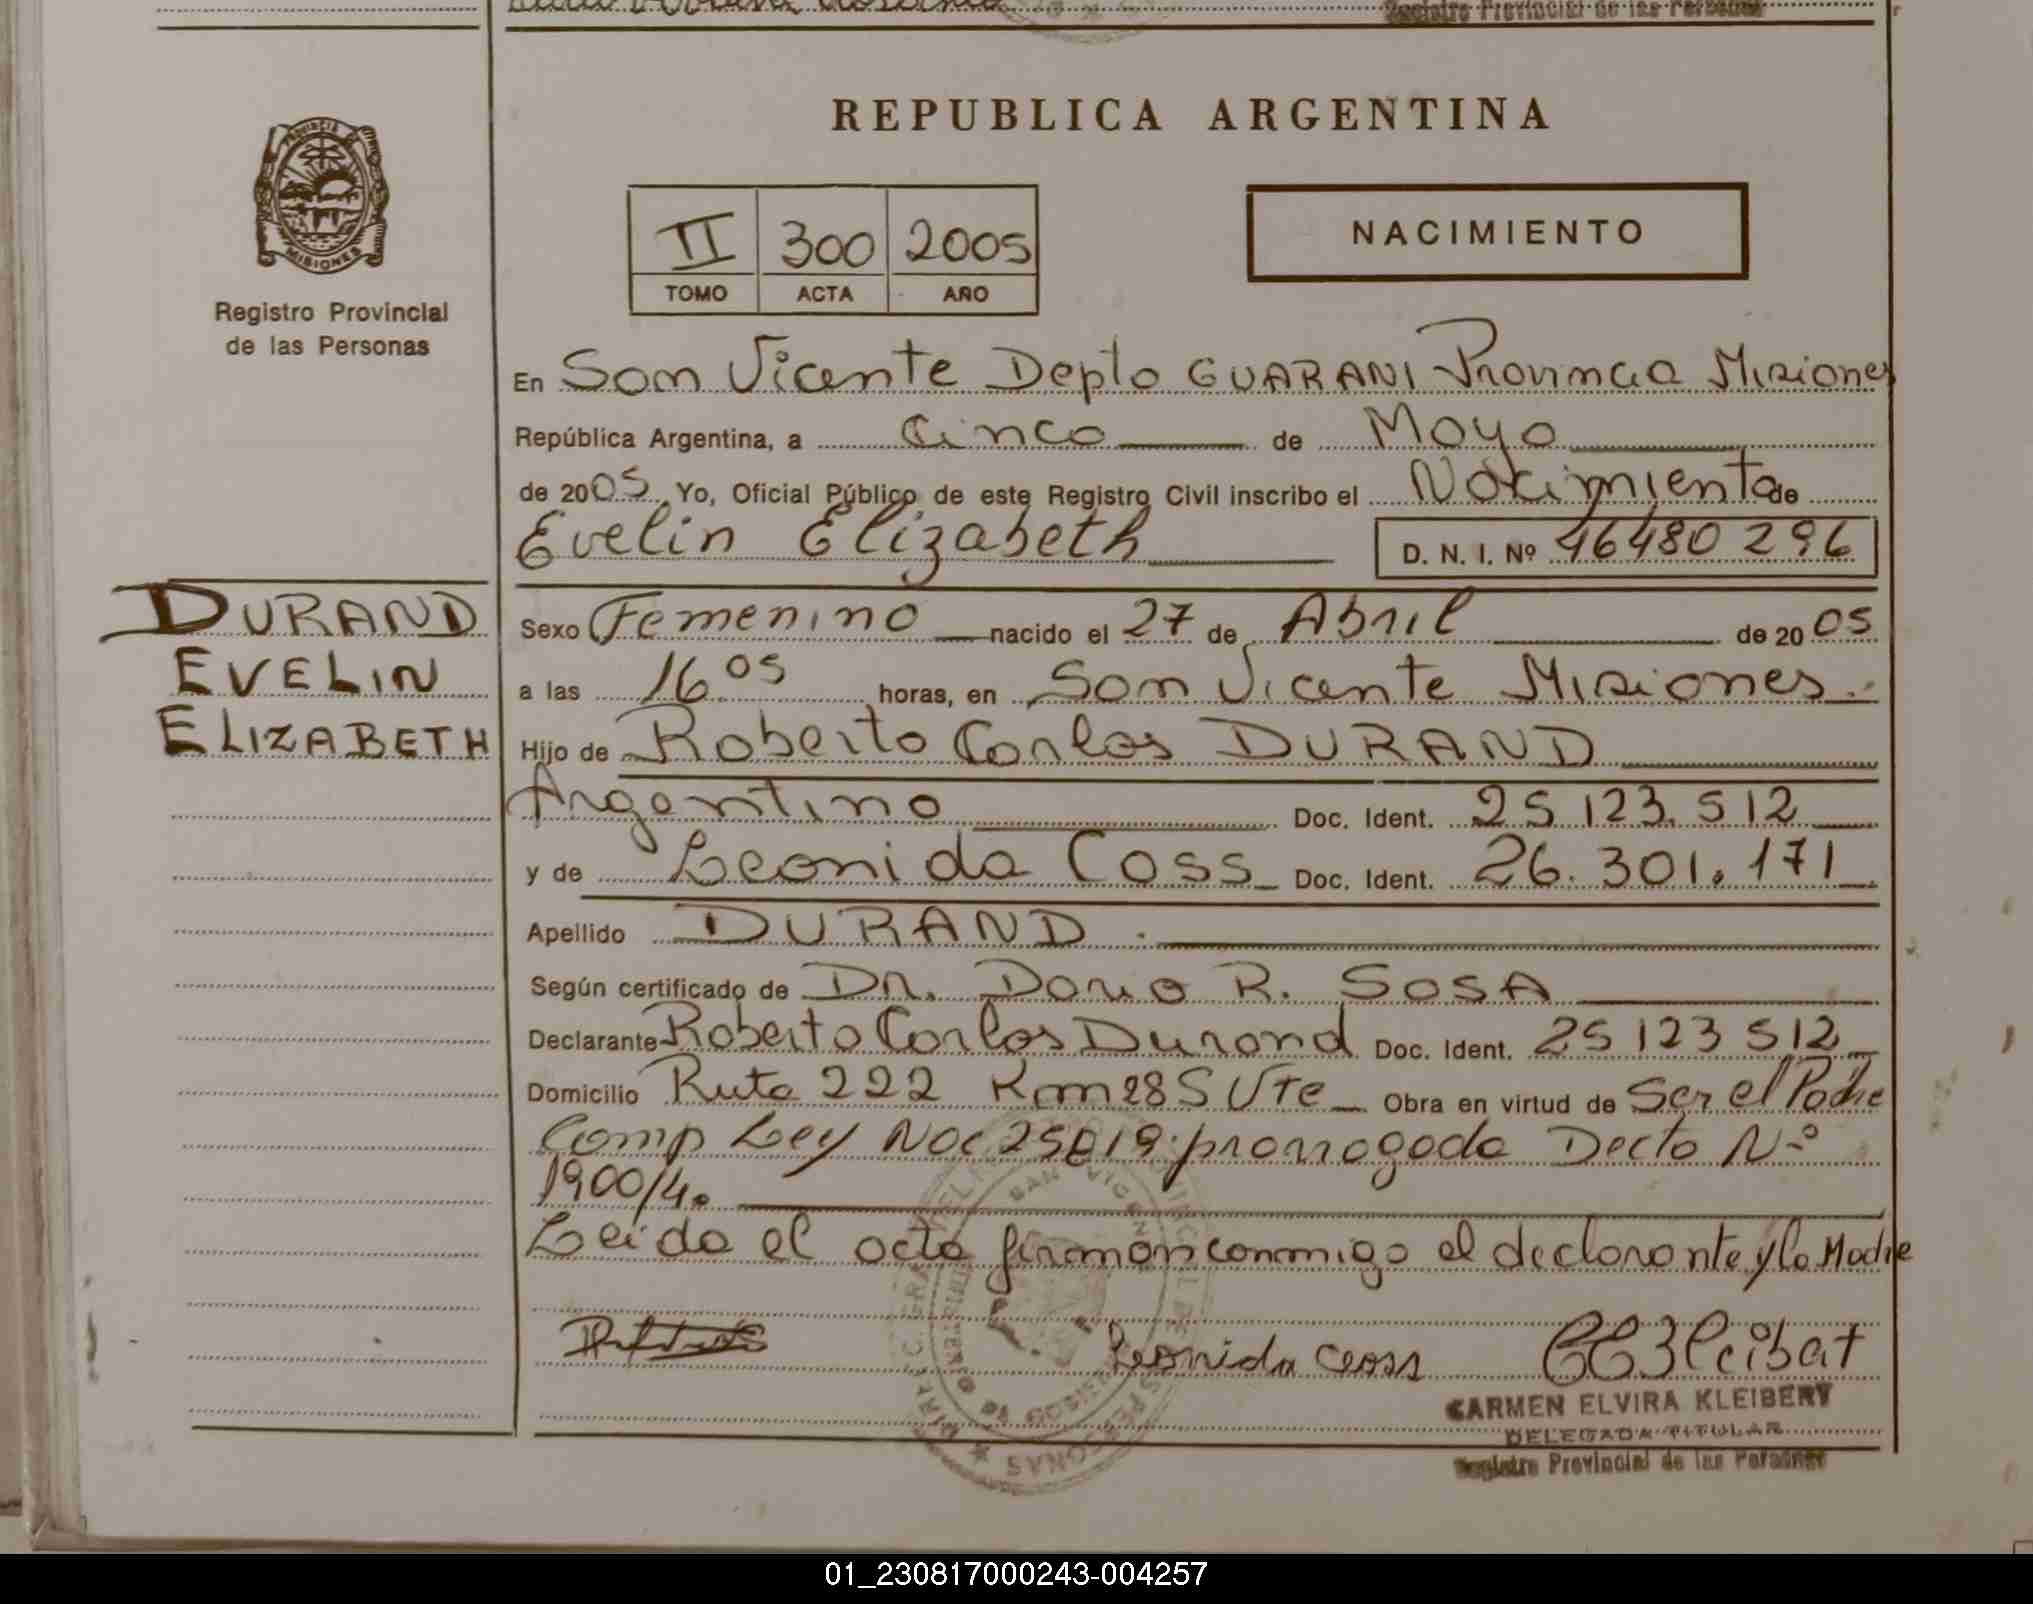 Registro Provincial de las Personas
REPUBLICA ARGENTINA
PROVINCIA DE
MISIONES
Registro Provincial
de las Personas
II 300 2005
TOMO ACTA AÑO
NACIMIENTO
En San Vicente Depto GUARANI Provincia Misiones
República Argentina, a Cinco de Mayo
de 2005 Yo, Oficial Público de este Registro Civil inscribo el Nacimiento de
Evelin Elizabeth D. N. I. Nº 46480 296
DURAND
EVELIN
ELIZABETH
Sexo Femenino nacido el 27 de Abril de 20 05
a las 16 05 horas, en San Vicente Misiones.
Hijo de Roberto Carlos DURAND
Argentino Doc. Ident. 25 123. 512
y de Leonida Coss Doc. Ident. 26. 301. 171
Apellido DURAND.
Según certificado de Dr. Dario R. SOSA
Declarante Roberto Carlos Durand Doc. Ident. 25 123 512
Domicilio Ruta 222 Km 28 S Vte Obra en virtud de Ser el Padre
Comp Ley Nac 25819 prorrogada Decto Nº
1900/4.
Leida el acta firman conmigo el declarante y la Madre
Leonida Coss
CARMEN ELVIRA KLEIBERT
DELEGADA TITULAR
Registro Provincial de las Personas
01_230817000243-004257